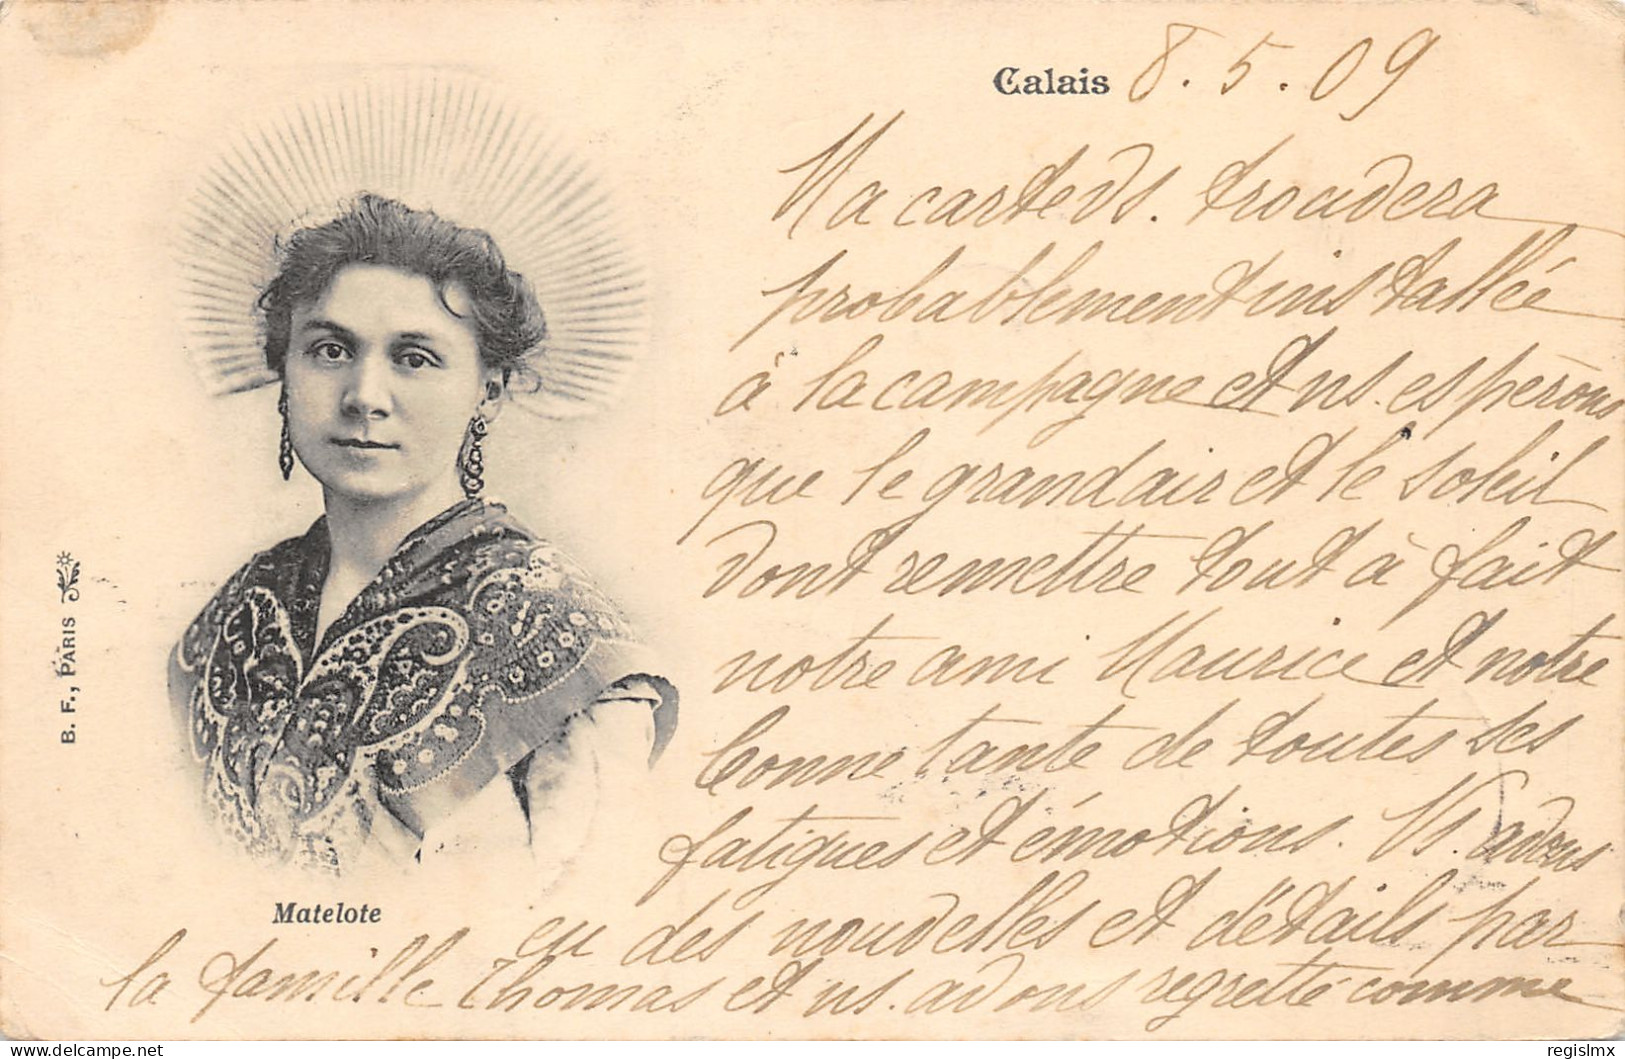 Calais 8.5.09
Ma carte vs. trouvera
probablement installée
à la campagne et ns. espérons
que le grand air et le soleil
vont remettre tout à fait
notre ami Maurice et notre
bonne tante de toutes ses
fatigues et émotions. Ns. avons
eu des nouvelles et détails par
la famille Thomas et ns. avons regretté comme
Matelote
B. F., PARIS
delcampe.net
regislmx